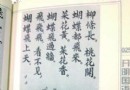 柳條長,桃花開,
蝴蝶都飛來,
菜花黃,菜花香,
蝴蝶飛過牆,
飛飛飛,看不見,
蝴蝶飛上天。